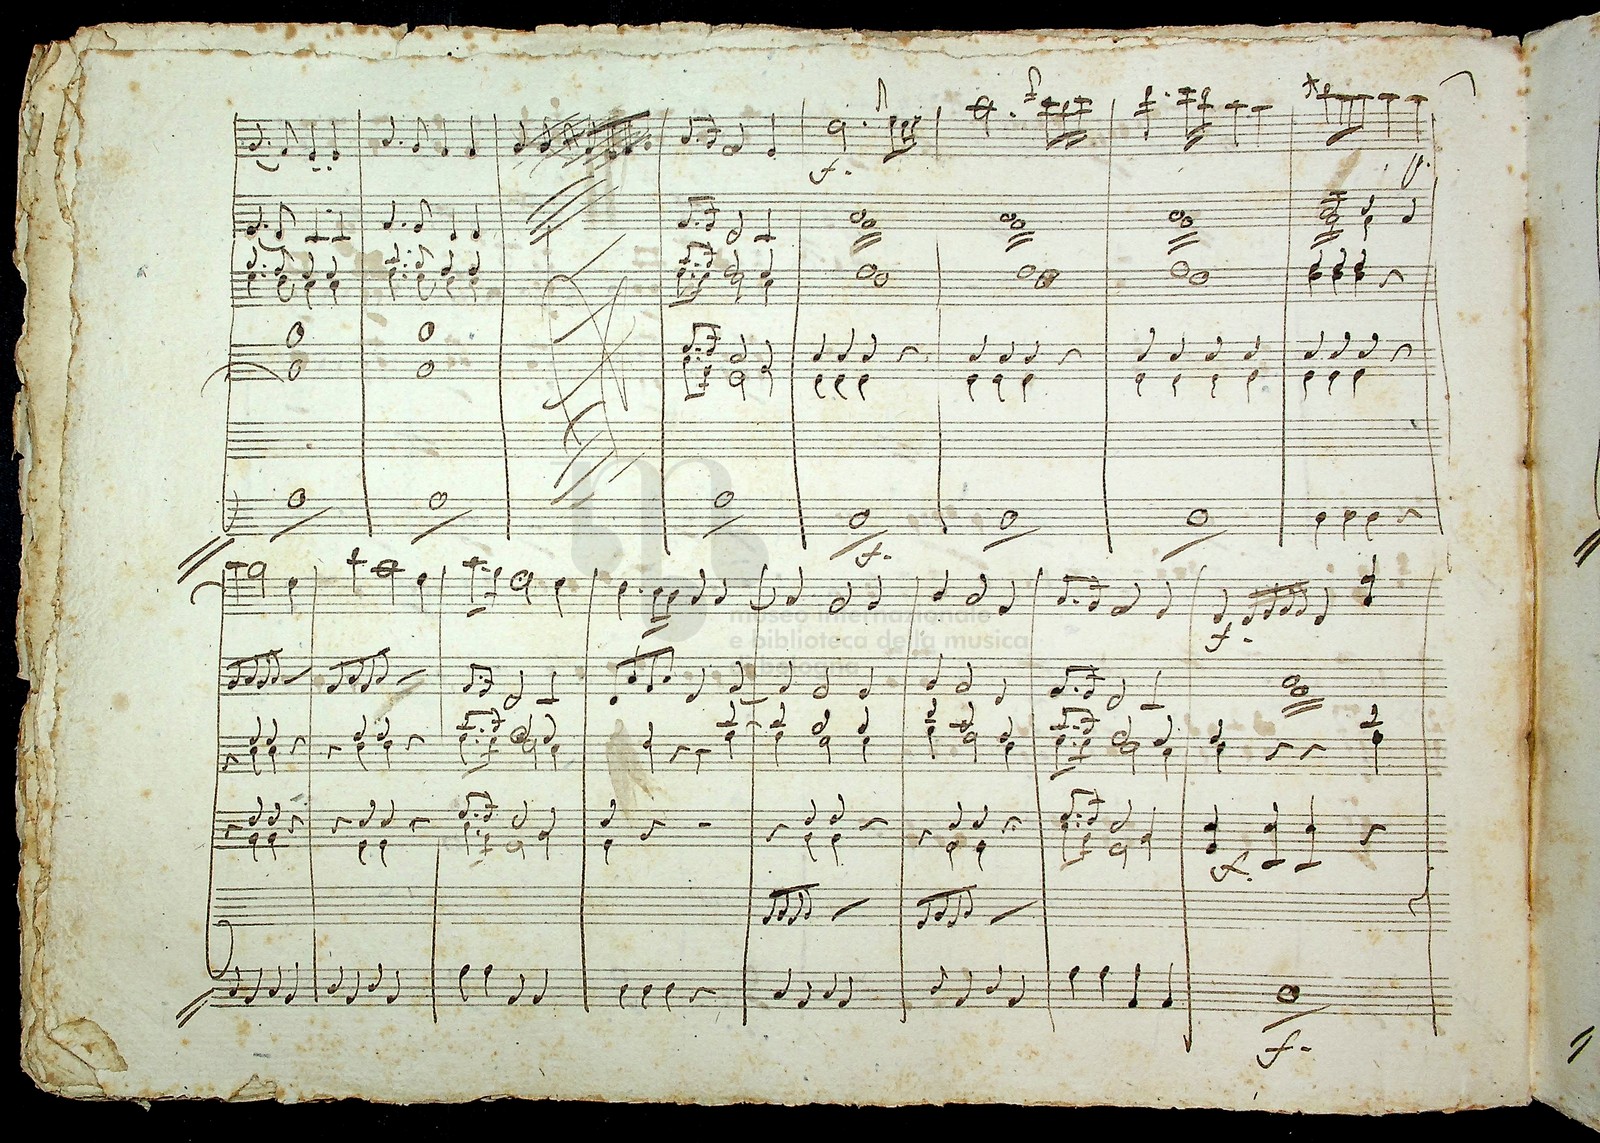 f.
f.
museo internazionale
e biblioteca della musica
di bologna
f.
f.
f.